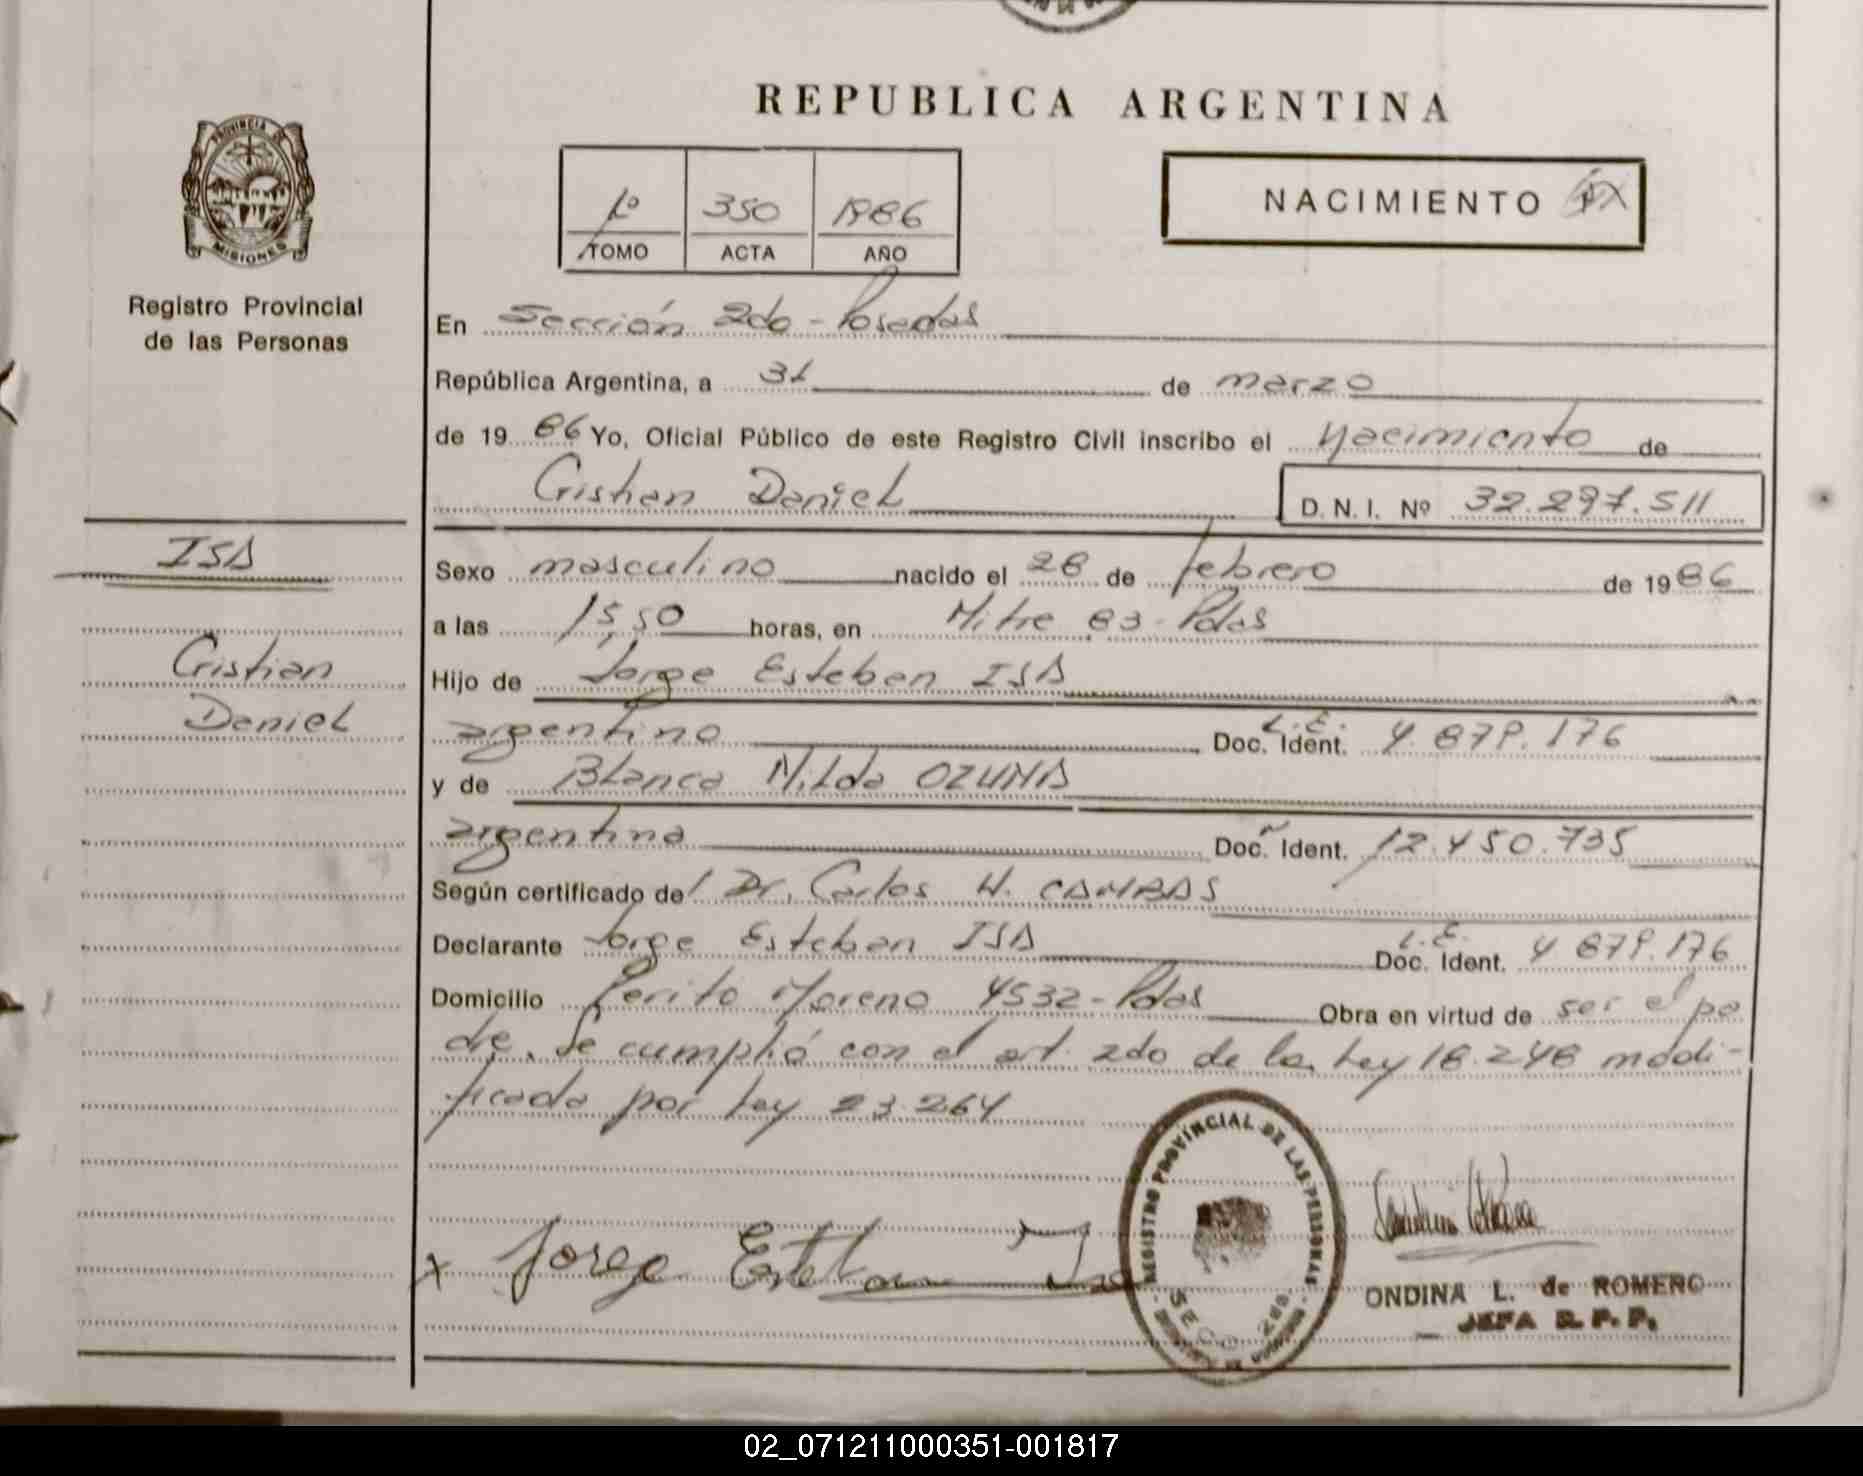 REPUBLICA ARGENTINA
PROVINCIA DE
MISIONES
Registro Provincial
de las Personas
1º 350 1986
TOMO ACTA AÑO
NACIMIENTO
En Sección 2do - Posadas
República Argentina, a 31 de marzo
de 1986 Yo, Oficial Público de este Registro Civil inscribo el Nacimiento de
Cristian Daniel D. N. I. Nº 32.297.511
ISA
Cristian
Daniel
Sexo masculino nacido el 28 de febrero de 1986
a las 15,50 horas, en Mitre 83 - Pdas
Hijo de Jorge Esteban ISA
argentino Doc. Ident. L.E. 4.879.176
y de Blanca Nilda OZUNA
argentina Doc. Ident. 12.450.735
Según certificado del Dr. Carlos H. CAMBAS
Declarante Jorge Esteban ISA Doc. Ident. L.E. 4 879.176
Domicilio Perito Moreno 4532 - Pdas Obra en virtud de ser el pa
dre. Se cumplió con el art. 2do de la Ley 18.248 modi-
ficada por Ley 23.264
x Jorge Esteban Isa
REGISTRO PROVINCIAL DE LAS PERSONAS
ONDINA L. de ROMERO
JEFA R. P. P.
02_071211000351-001817